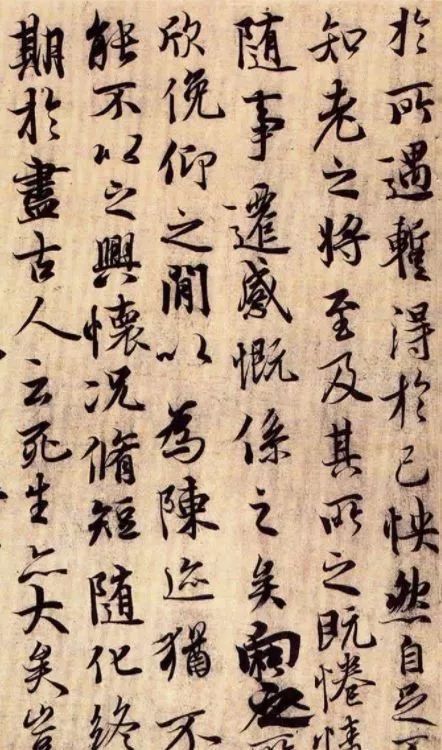 於所遇暫得於己怏然自足不
知老之將至及其所之既惓情
隨事遷感慨係之矣向之所
欣俛仰之閒以為陳迹猶不
能不以之興懷況脩短隨化終
期於盡古人云死生亦大矣豈